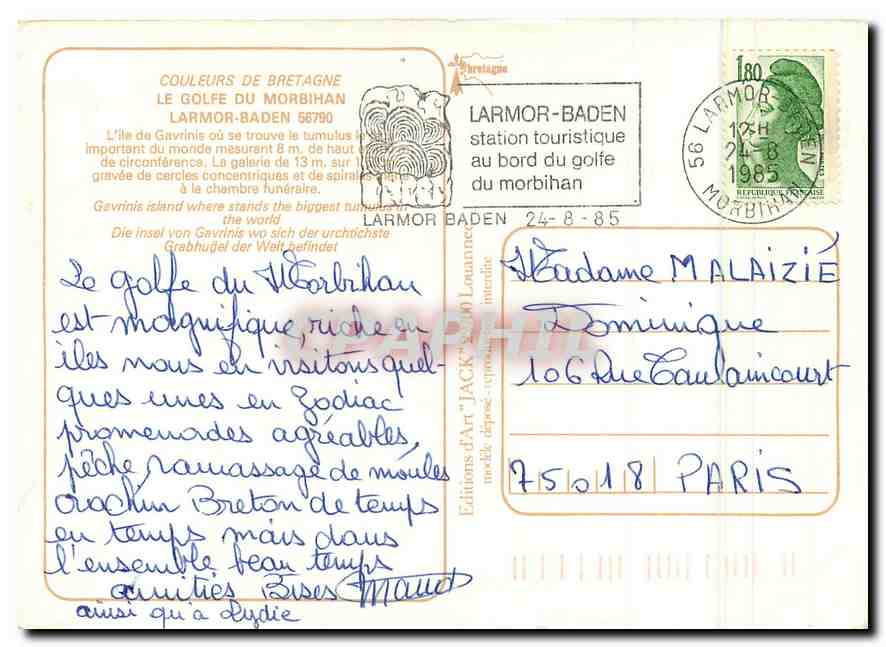 COULEURS DE BRETAGNE
LE GOLFE DU MORBIHAN
LARMOR-BADEN 56790
L'île de Gavrinis où se trouve le tumulus le
important du monde mesurant 8 m. de haut
de circonférence. La galerie de 13 m. sur
gravée de cercles concentriques et de spirales
à la chambre funéraire.
Gavrinis island where stands the biggest tumulus
the world
Die insel von Gavrinis wo sich der urchtichste
Grabhugel der Welt befindet
bretagne
LARMOR-BADEN
station touristique
au bord du golfe
du morbihan
LARMOR BADEN 24-8-85
1,80
REPUBLIQUE FRANÇAISE
56 LARMOR BADEN
12 H
24-8
1985
MORBIHAN
Le golfe du Morbihan
est magnifique, riche en
iles nous en visitons quel-
ques unes en Zodiac
promenades agréables,
pêche ramassage de moules
crachin Breton de temps
en temps mais dans
l'ensemble beau temps
amitiés Bises Maud
ainsi qu'a Lydie
Editions d'Art "JACK" Louannec
modèle déposé - reproduction interdite
Madame MALAIZIÉ
Dominique
106 Rue Caulaincourt
75018 PARIS
CPAPHIL